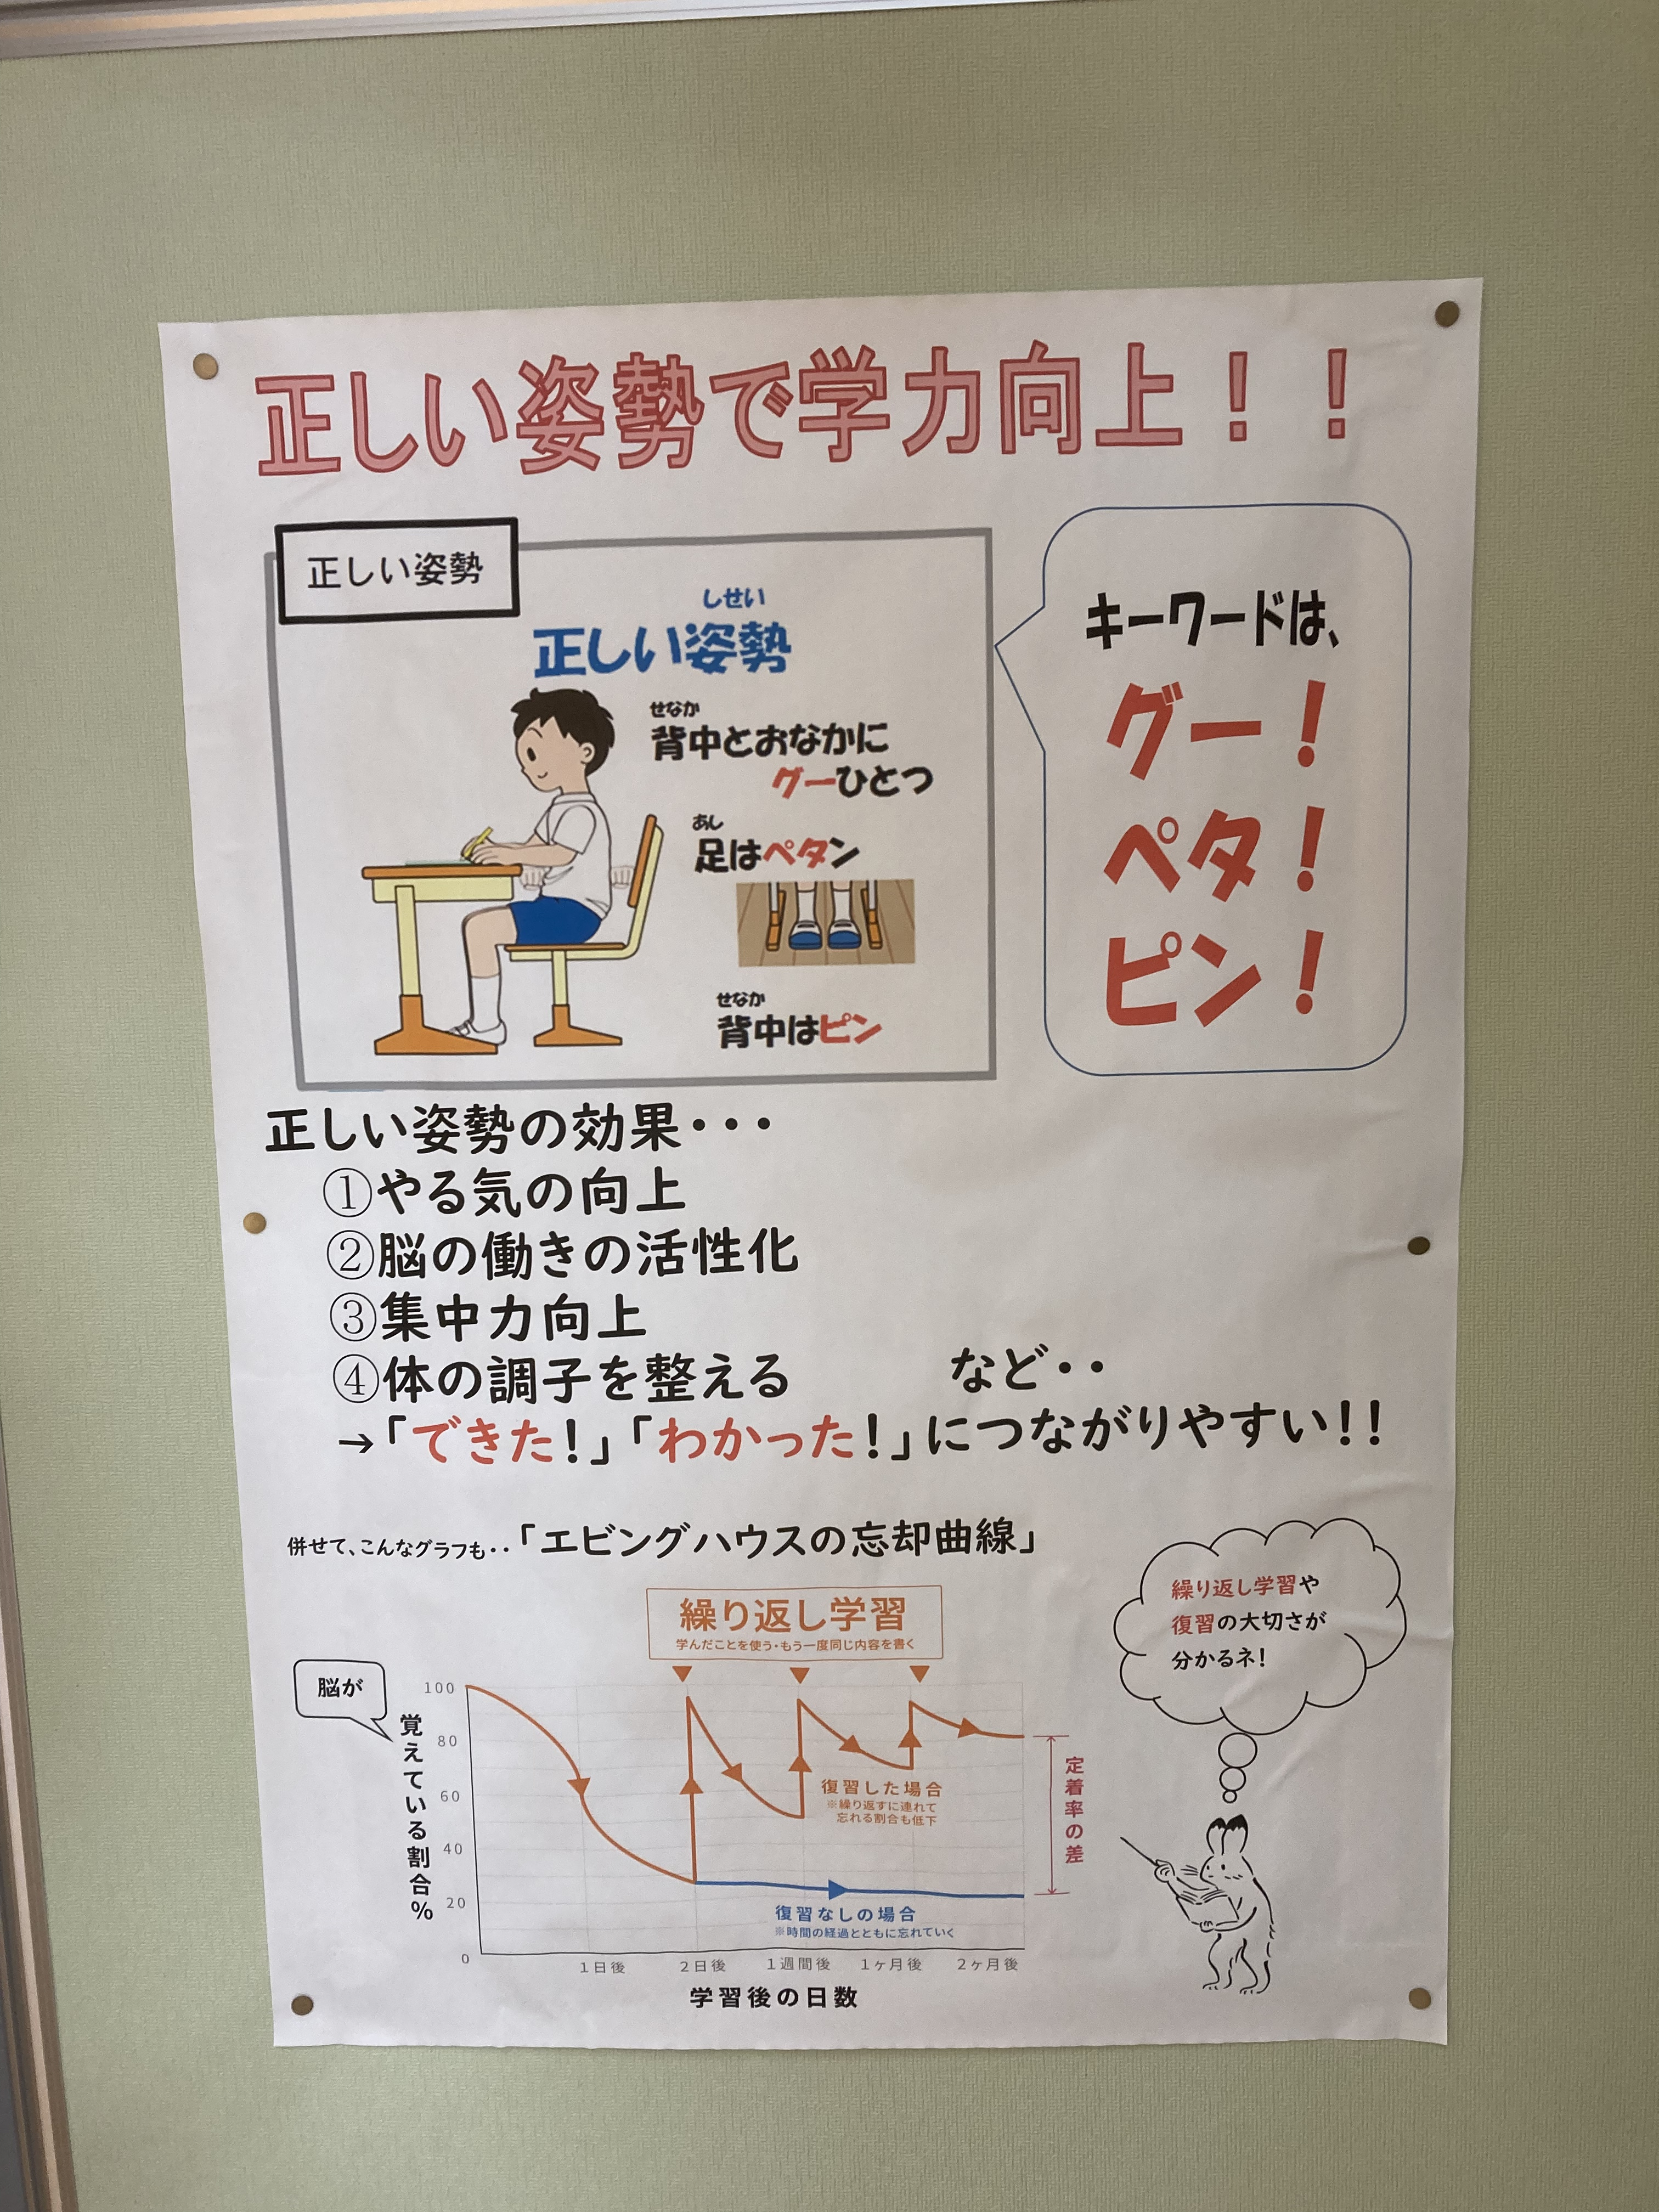 正しい姿勢で学力向上！！
正しい姿勢
しせい
正しい姿勢
せなか
背中とおなかに
グーひとつ
あし
足はペタン
せなか
背中はピン
キーワードは、
グー！
ペタ！
ピン！
正しい姿勢の効果・・・
①やる気の向上
②脳の働きの活性化
③集中力向上
④体の調子を整える　　　など・・
→「できた！」「わかった！」につながりやすい！！
併せて、こんなグラフも・・「エビングハウスの忘却曲線」
繰り返し学習
学んだことを使う・もう一度同じ内容を書く
繰り返し学習や
復習の大切さが
分かるネ！
脳が
覚えている割合%
100
80
60
40
20
0
復習した場合
※繰り返すに連れて
忘れる割合も低下
定着率の差
復習なしの場合
※時間の経過とともに忘れていく
1日後 2日後 1週間後 1ヶ月後 2ヶ月後
学習後の日数